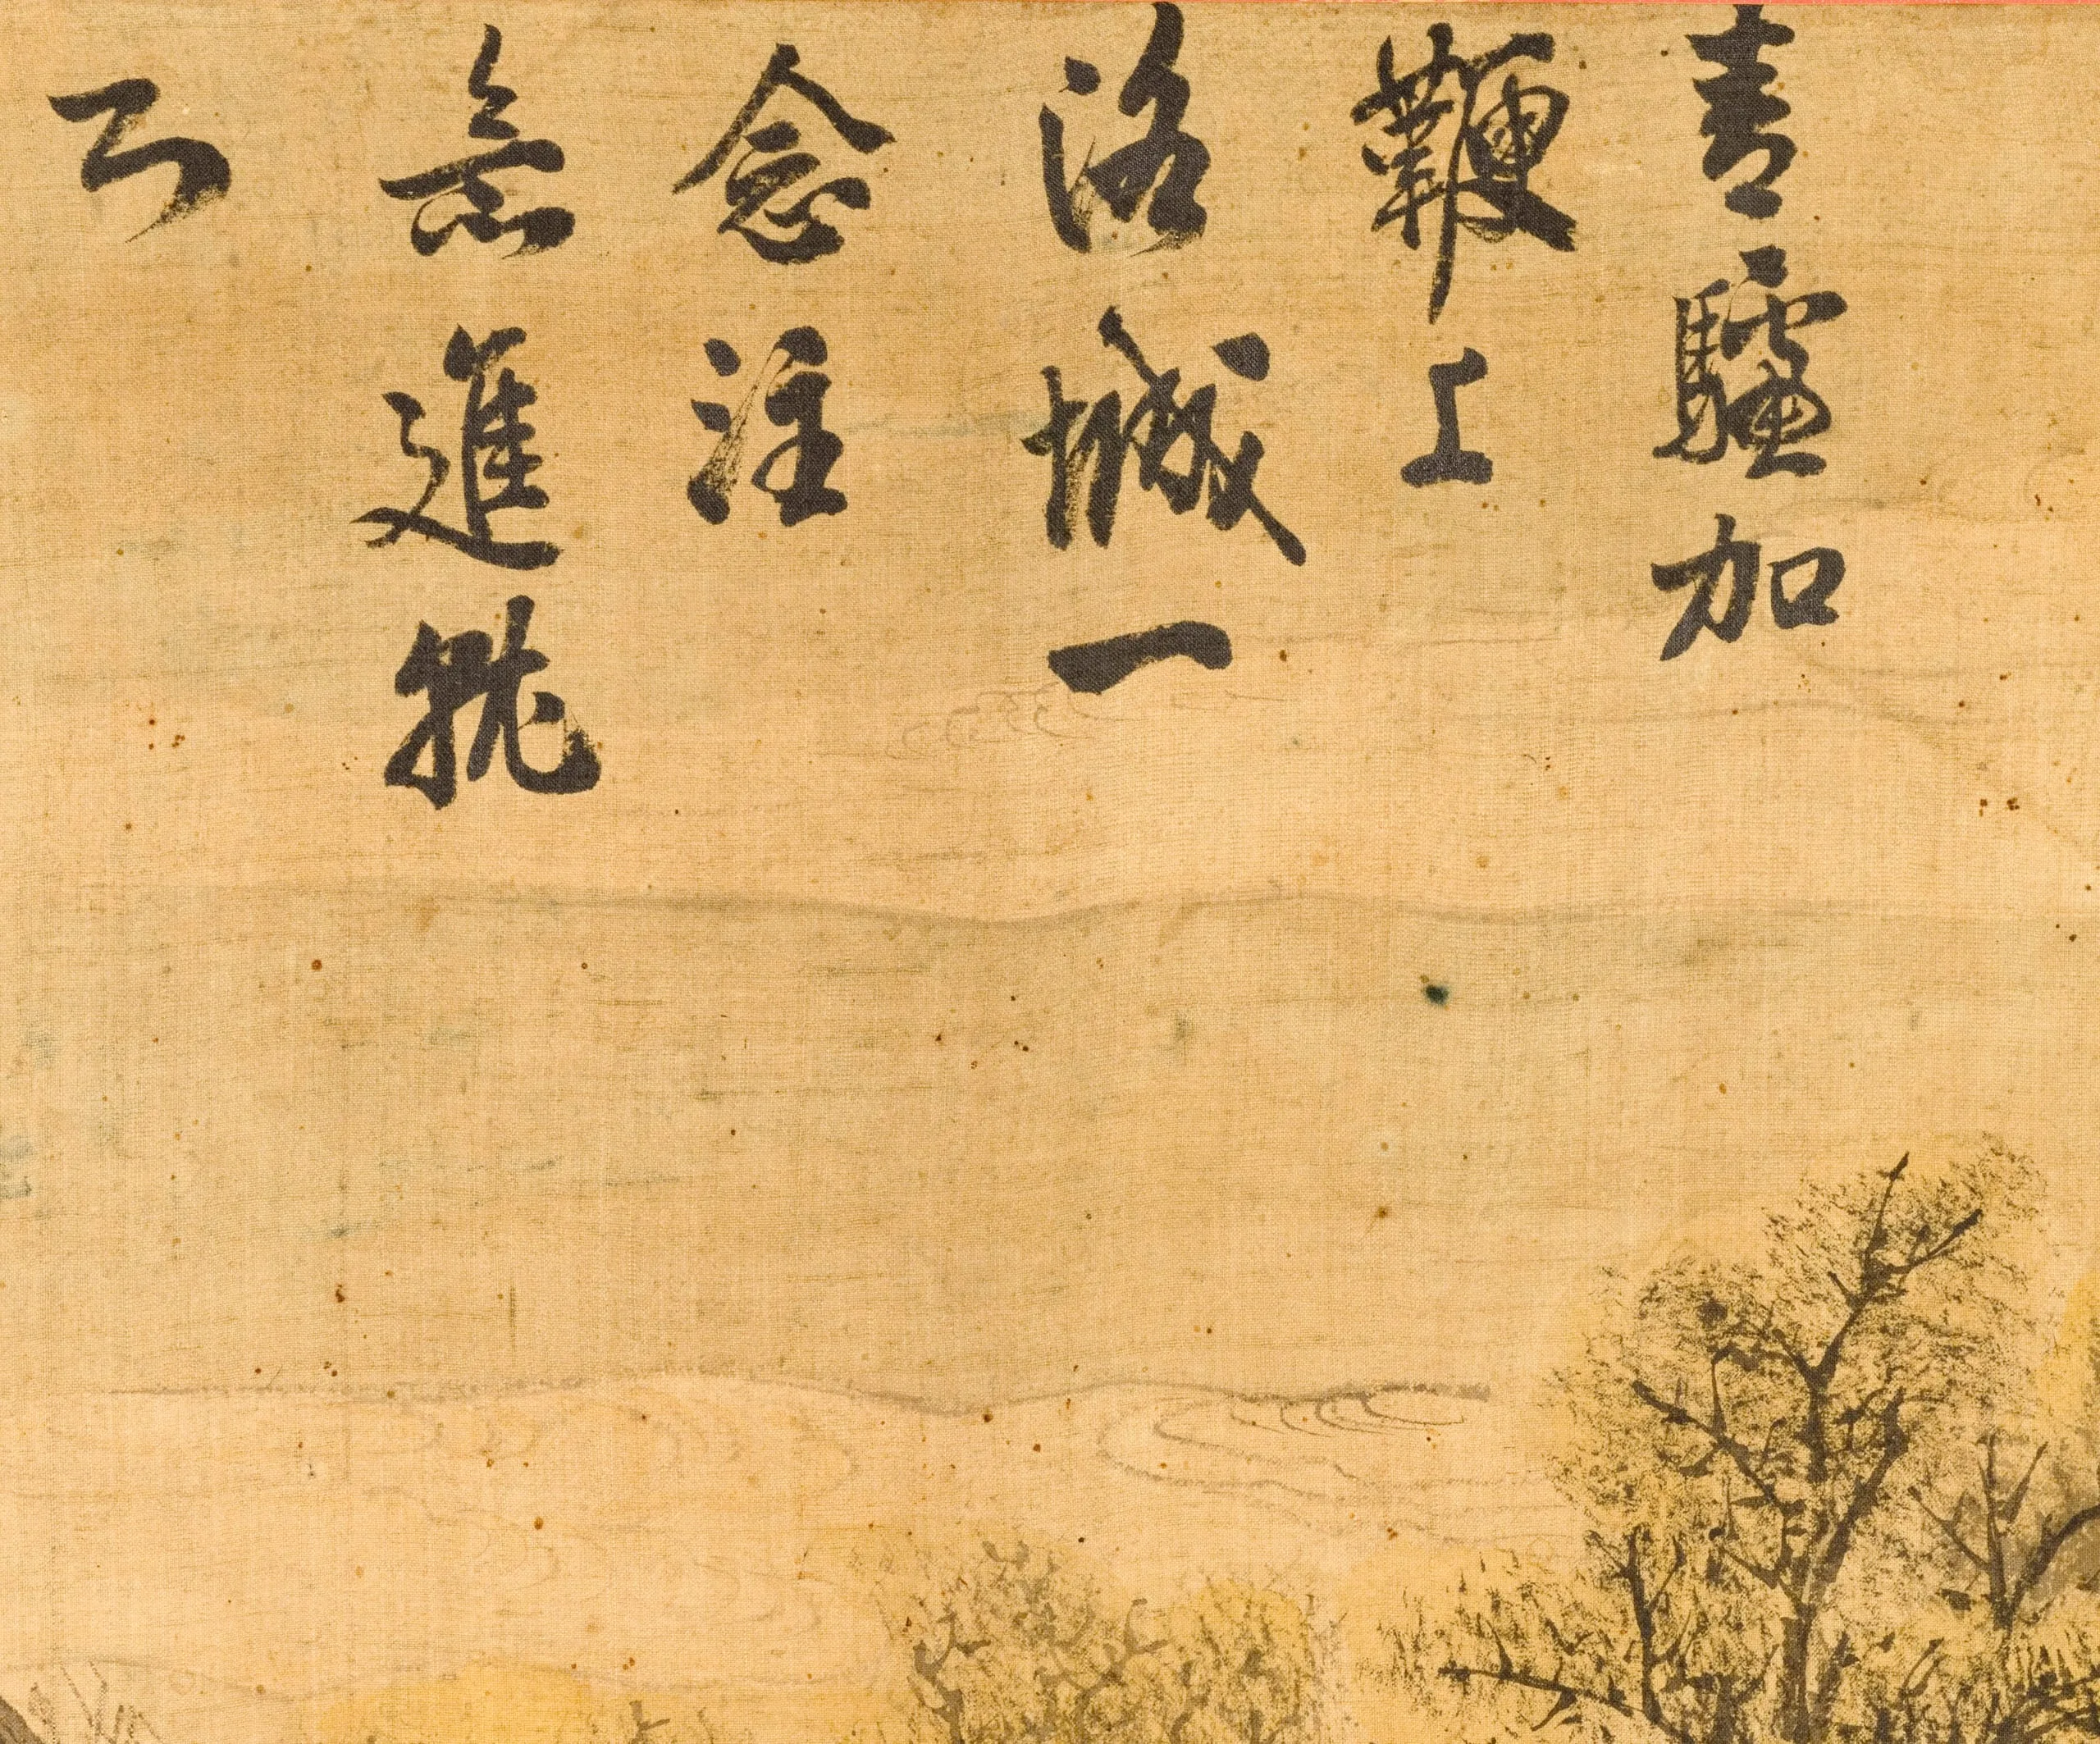 青驢加
鞭上
洛城一
念注
無進就